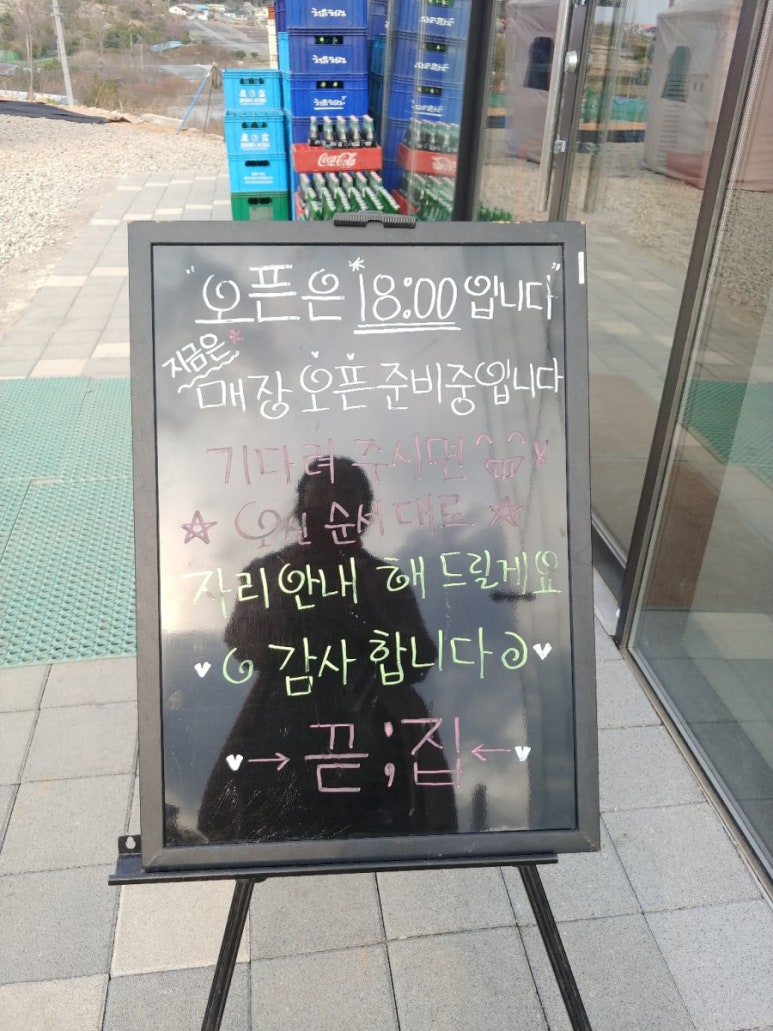 Coca-Cola
"오픈은 *18:00 입니다"
지금은*
매장 오픈 준비중입니다
기다려 주시면 ^^
☆ 오신 순서대로 ☆
자리 안내 해 드릴게요
감사합니다
→ 끝;집 ←